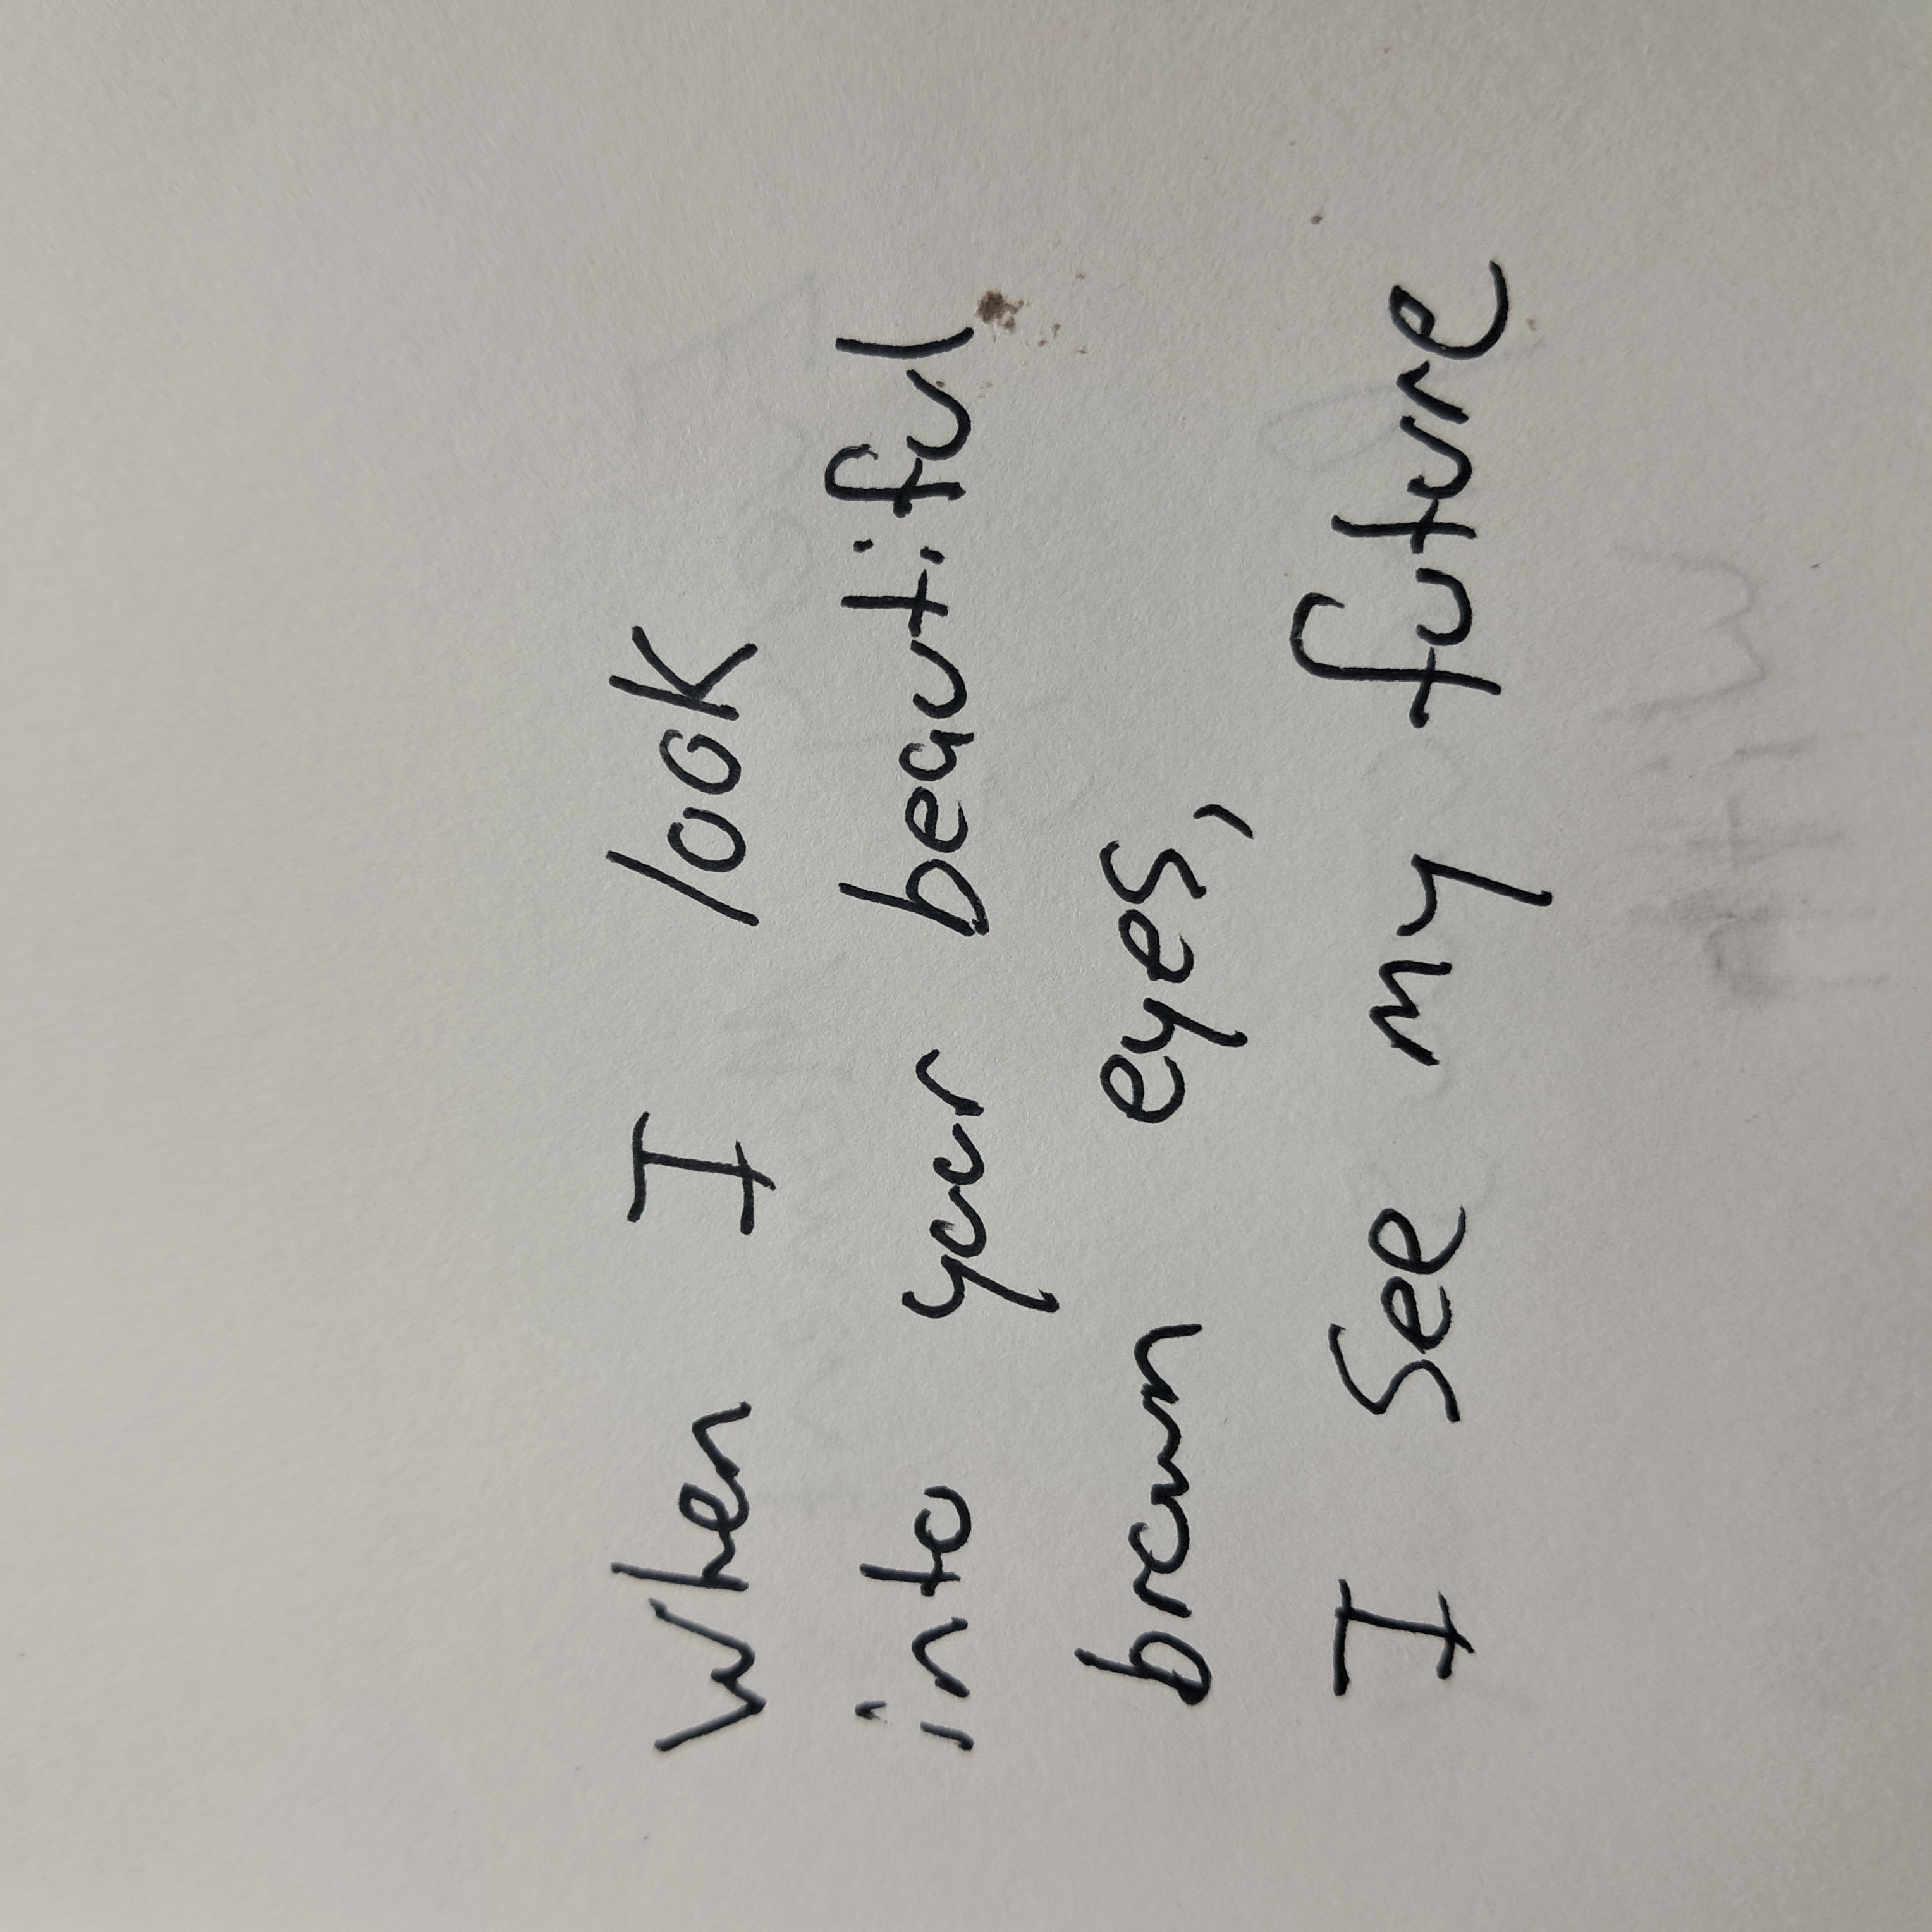 When I look
into your beautiful
brown eyes,
I see my future